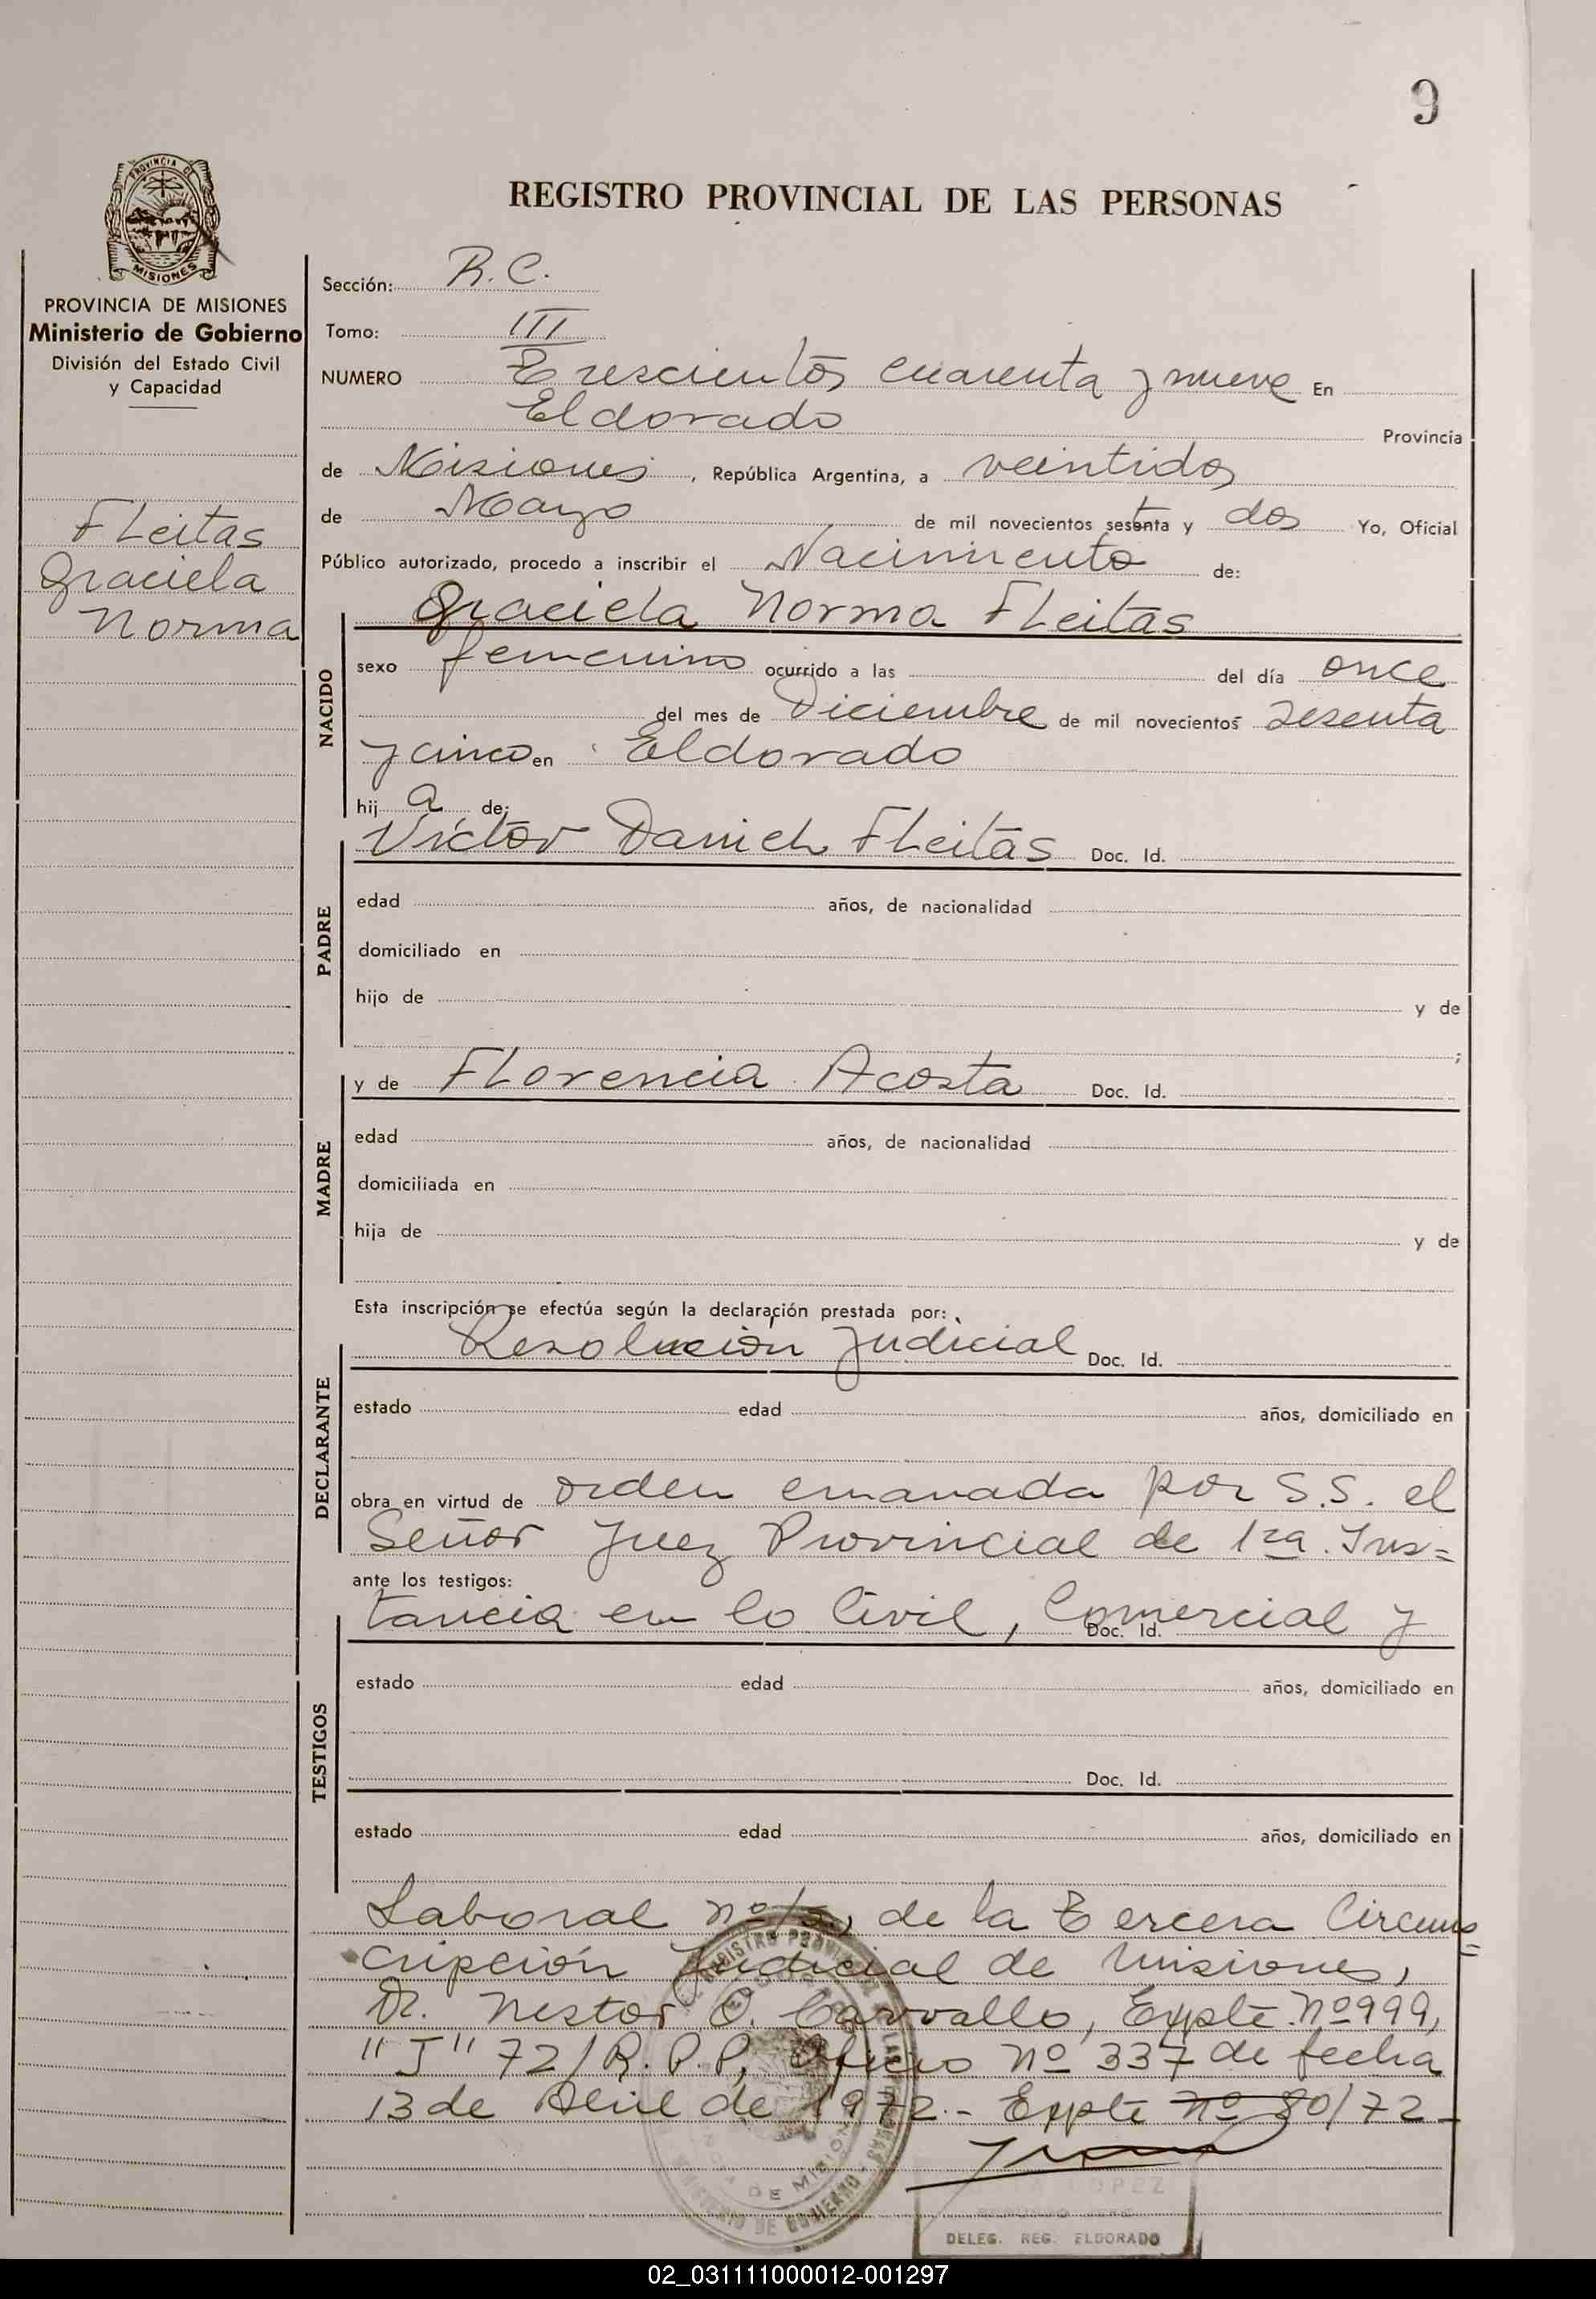 9
PROVINCIA DE
MISIONES
PROVINCIA DE MISIONES
Ministerio de Gobierno
División del Estado Civil
y Capacidad
FLeitas
Graciela
Norma
REGISTRO PROVINCIAL DE LAS PERSONAS
Sección: R. C.
Tomo: III
NUMERO Trescientos cuarenta y nueve En
Eldorado Provincia
de Misiones, República Argentina, a veintidos
de Mayo de mil novecientos sesenta y dos Yo, Oficial
Público autorizado, procedo a inscribir el Nacimiento de:
NACIDO
Graciela Norma FLeitas
sexo femenino ocurrido a las del día once
del mes de Diciembre de mil novecientos sesenta
y cinco en Eldorado
hij a de:
PADRE
Víctor Daniel FLeitas Doc. Id.
edad años, de nacionalidad
domiciliado en
hijo de y de
;
MADRE
y de FLorencia Acosta Doc. Id.
edad años, de nacionalidad
domiciliada en
hija de y de
Esta inscripción se efectúa según la declaración prestada por:
DECLARANTE
Resolución Judicial Doc. Id.
estado edad años, domiciliado en
obra en virtud de orden emanada por S.S. el
Señor Juez Provincial de 1ra. Ins=
ante los testigos:
TESTIGOS
tancia en lo Civil, Comercial y Doc. Id.
estado edad años, domiciliado en
Doc. Id.
estado edad años, domiciliado en
Laboral nº de la Tercera Circuns=
cripción Judicial de Misiones,
Dr. Nestor O. Carvallo, Expte. nº 999,
"J" 72/R.P.P, Oficio nº 337 de fecha
13 de Abril de 1972.- Expte nº 80/72-
REGISTRO PROVINCIAL DE LAS PERSONAS
MINISTERIO DE GOBIERNO
DE MISIONES
LOPEZ
DELEG. REG. ELDORADO
02_031111000012-001297